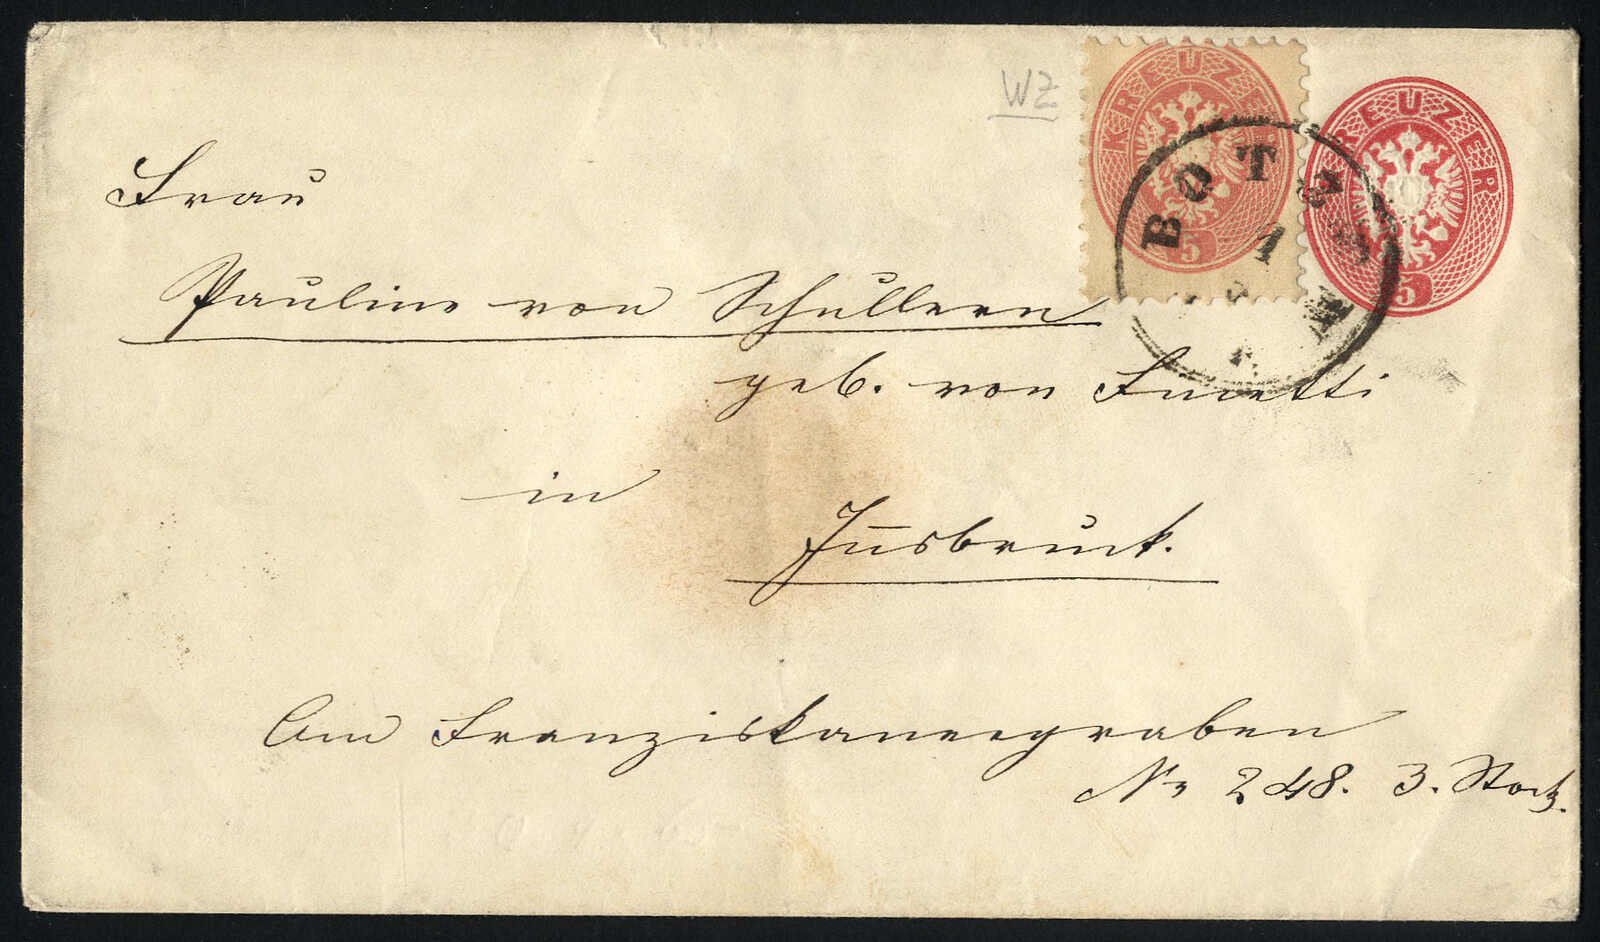 WZ
KREUZER
5
KREUZER
5
BOTZEN
1
Frau
Pauline von Schullern
geb. von
in
Innsbruck.
Am Franziskanergraben
Nr 248. 3. Stock.